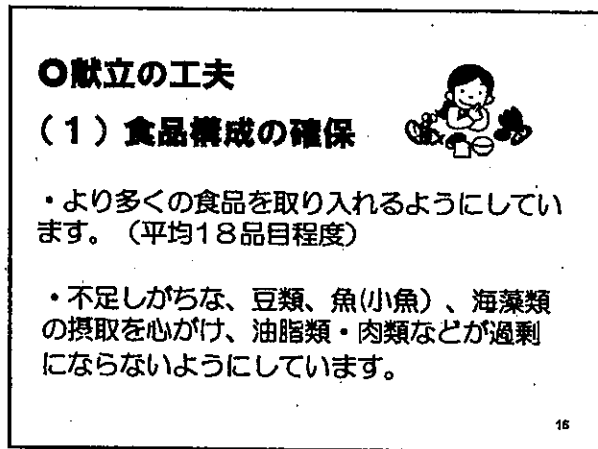 ○献立の工夫
（1）食品構成の確保
・より多くの食品を取り入れるようにしてい
ます。（平均18品目程度）
・不足しがちな、豆類、魚(小魚）、海藻類
の摂取を心がけ、油脂類・肉類などが過剰
にならないようにしています。
16